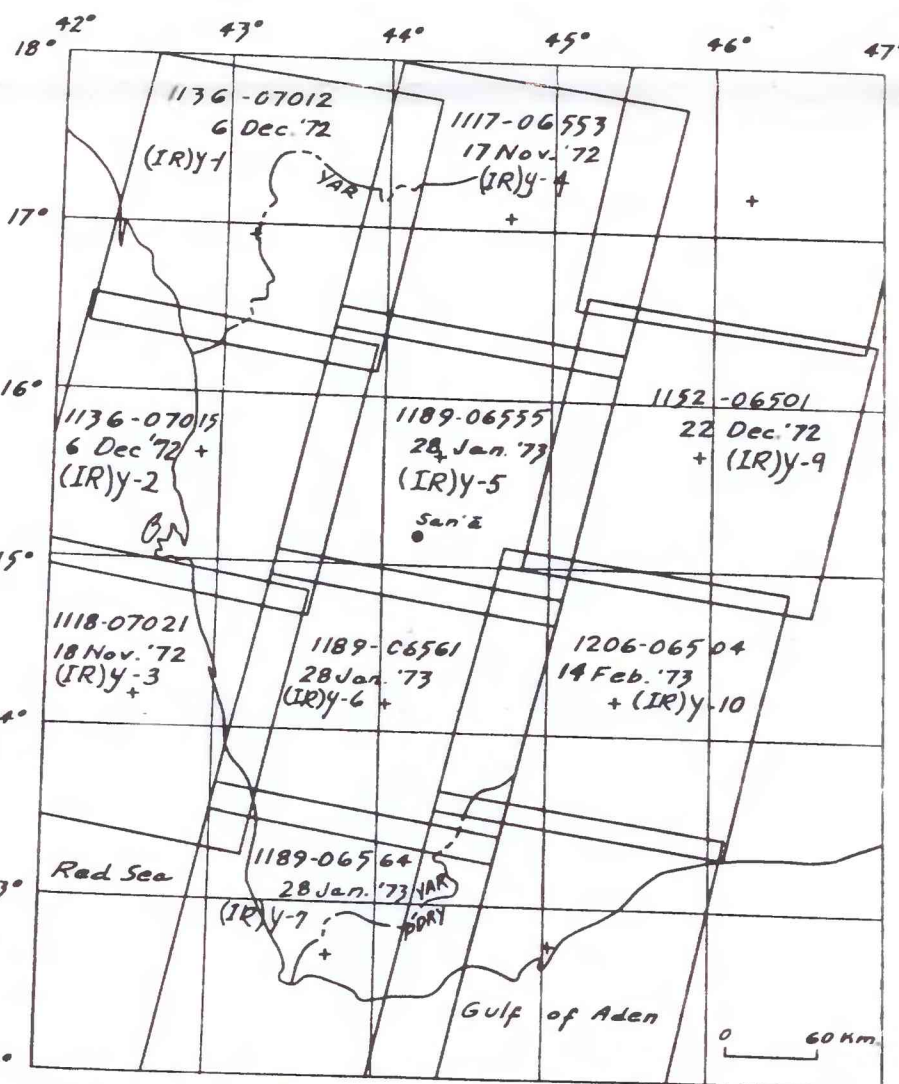 42° 43° 44° 45° 46° 47°
18°
1136-07012
6 Dec.'72
(IR)Y-1
1117-06553
17 Nov.'72
(IR)Y-4
YAR
17°
16°
1136-07015
6 Dec '72
(IR)Y-2
1189-06555
28 Jan.'73
(IR)Y-5
San'a
1152-06501
22 Dec.'72
(IR)Y-9
15°
1118-07021
18 Nov.'72
(IR)Y-3
1189-C6561
28 Jan.'73
(IR)Y-6
1206-06504
14 Feb.'73
(IR)Y-10
4°
Red Sea
3°
1189-06564
28 Jan.'73
(IR)Y-7
YAR
PDRY
Gulf of Aden
0 60 Km.
°